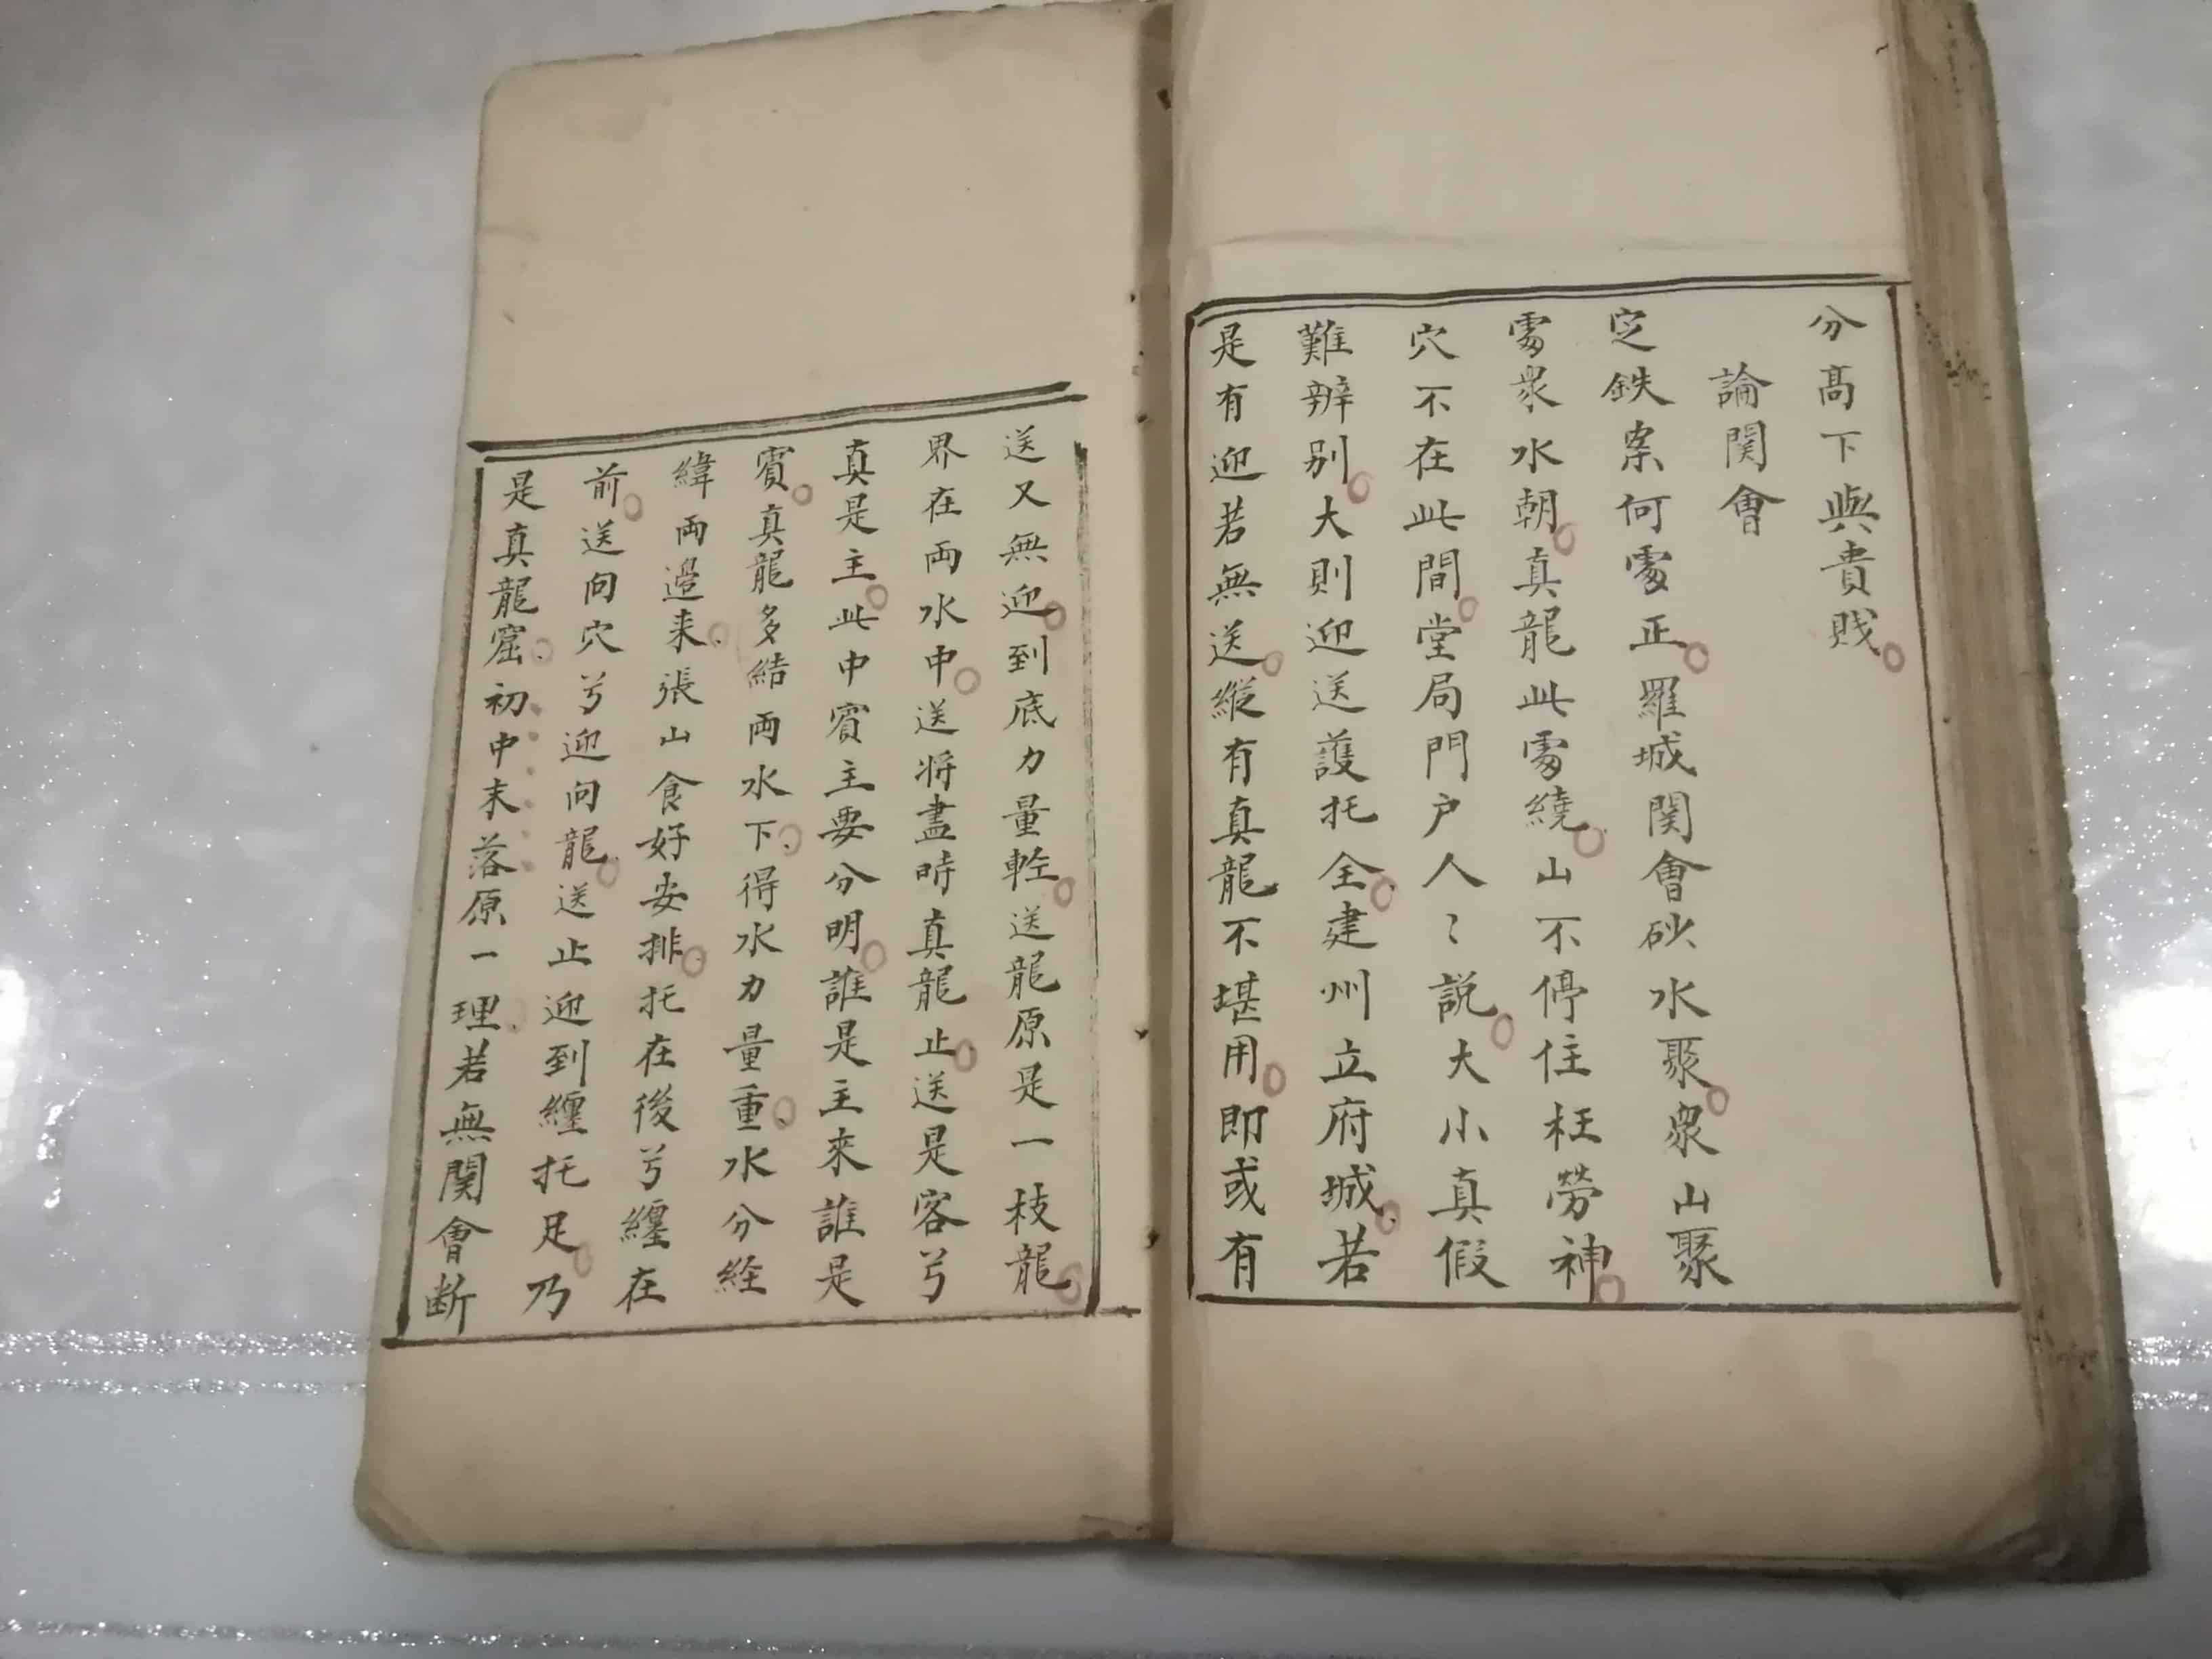 分高下與貴賎
論関會
定鉄案何處正羅城関會砂水聚衆山聚
處衆水朝真龍此處繞山不停住枉勞神
穴不在此間堂局門户人〻説大小真假
難辨别大則迎送護托全建州立府城若
是有迎若無送縱有真龍不堪用即或有
送又無迎到底力量輊送龍原是一枝龍
界在両水中送将盡時真龍止送是客兮
真是主此中賔主要分明誰是主來誰是
賔真龍多結両水下得水力量重水分經
緯両邉来張山食好安排托在後兮纏在
前送向穴兮迎向龍送止迎到纏托足乃
是真龍窟初中末落原一理若無関會断